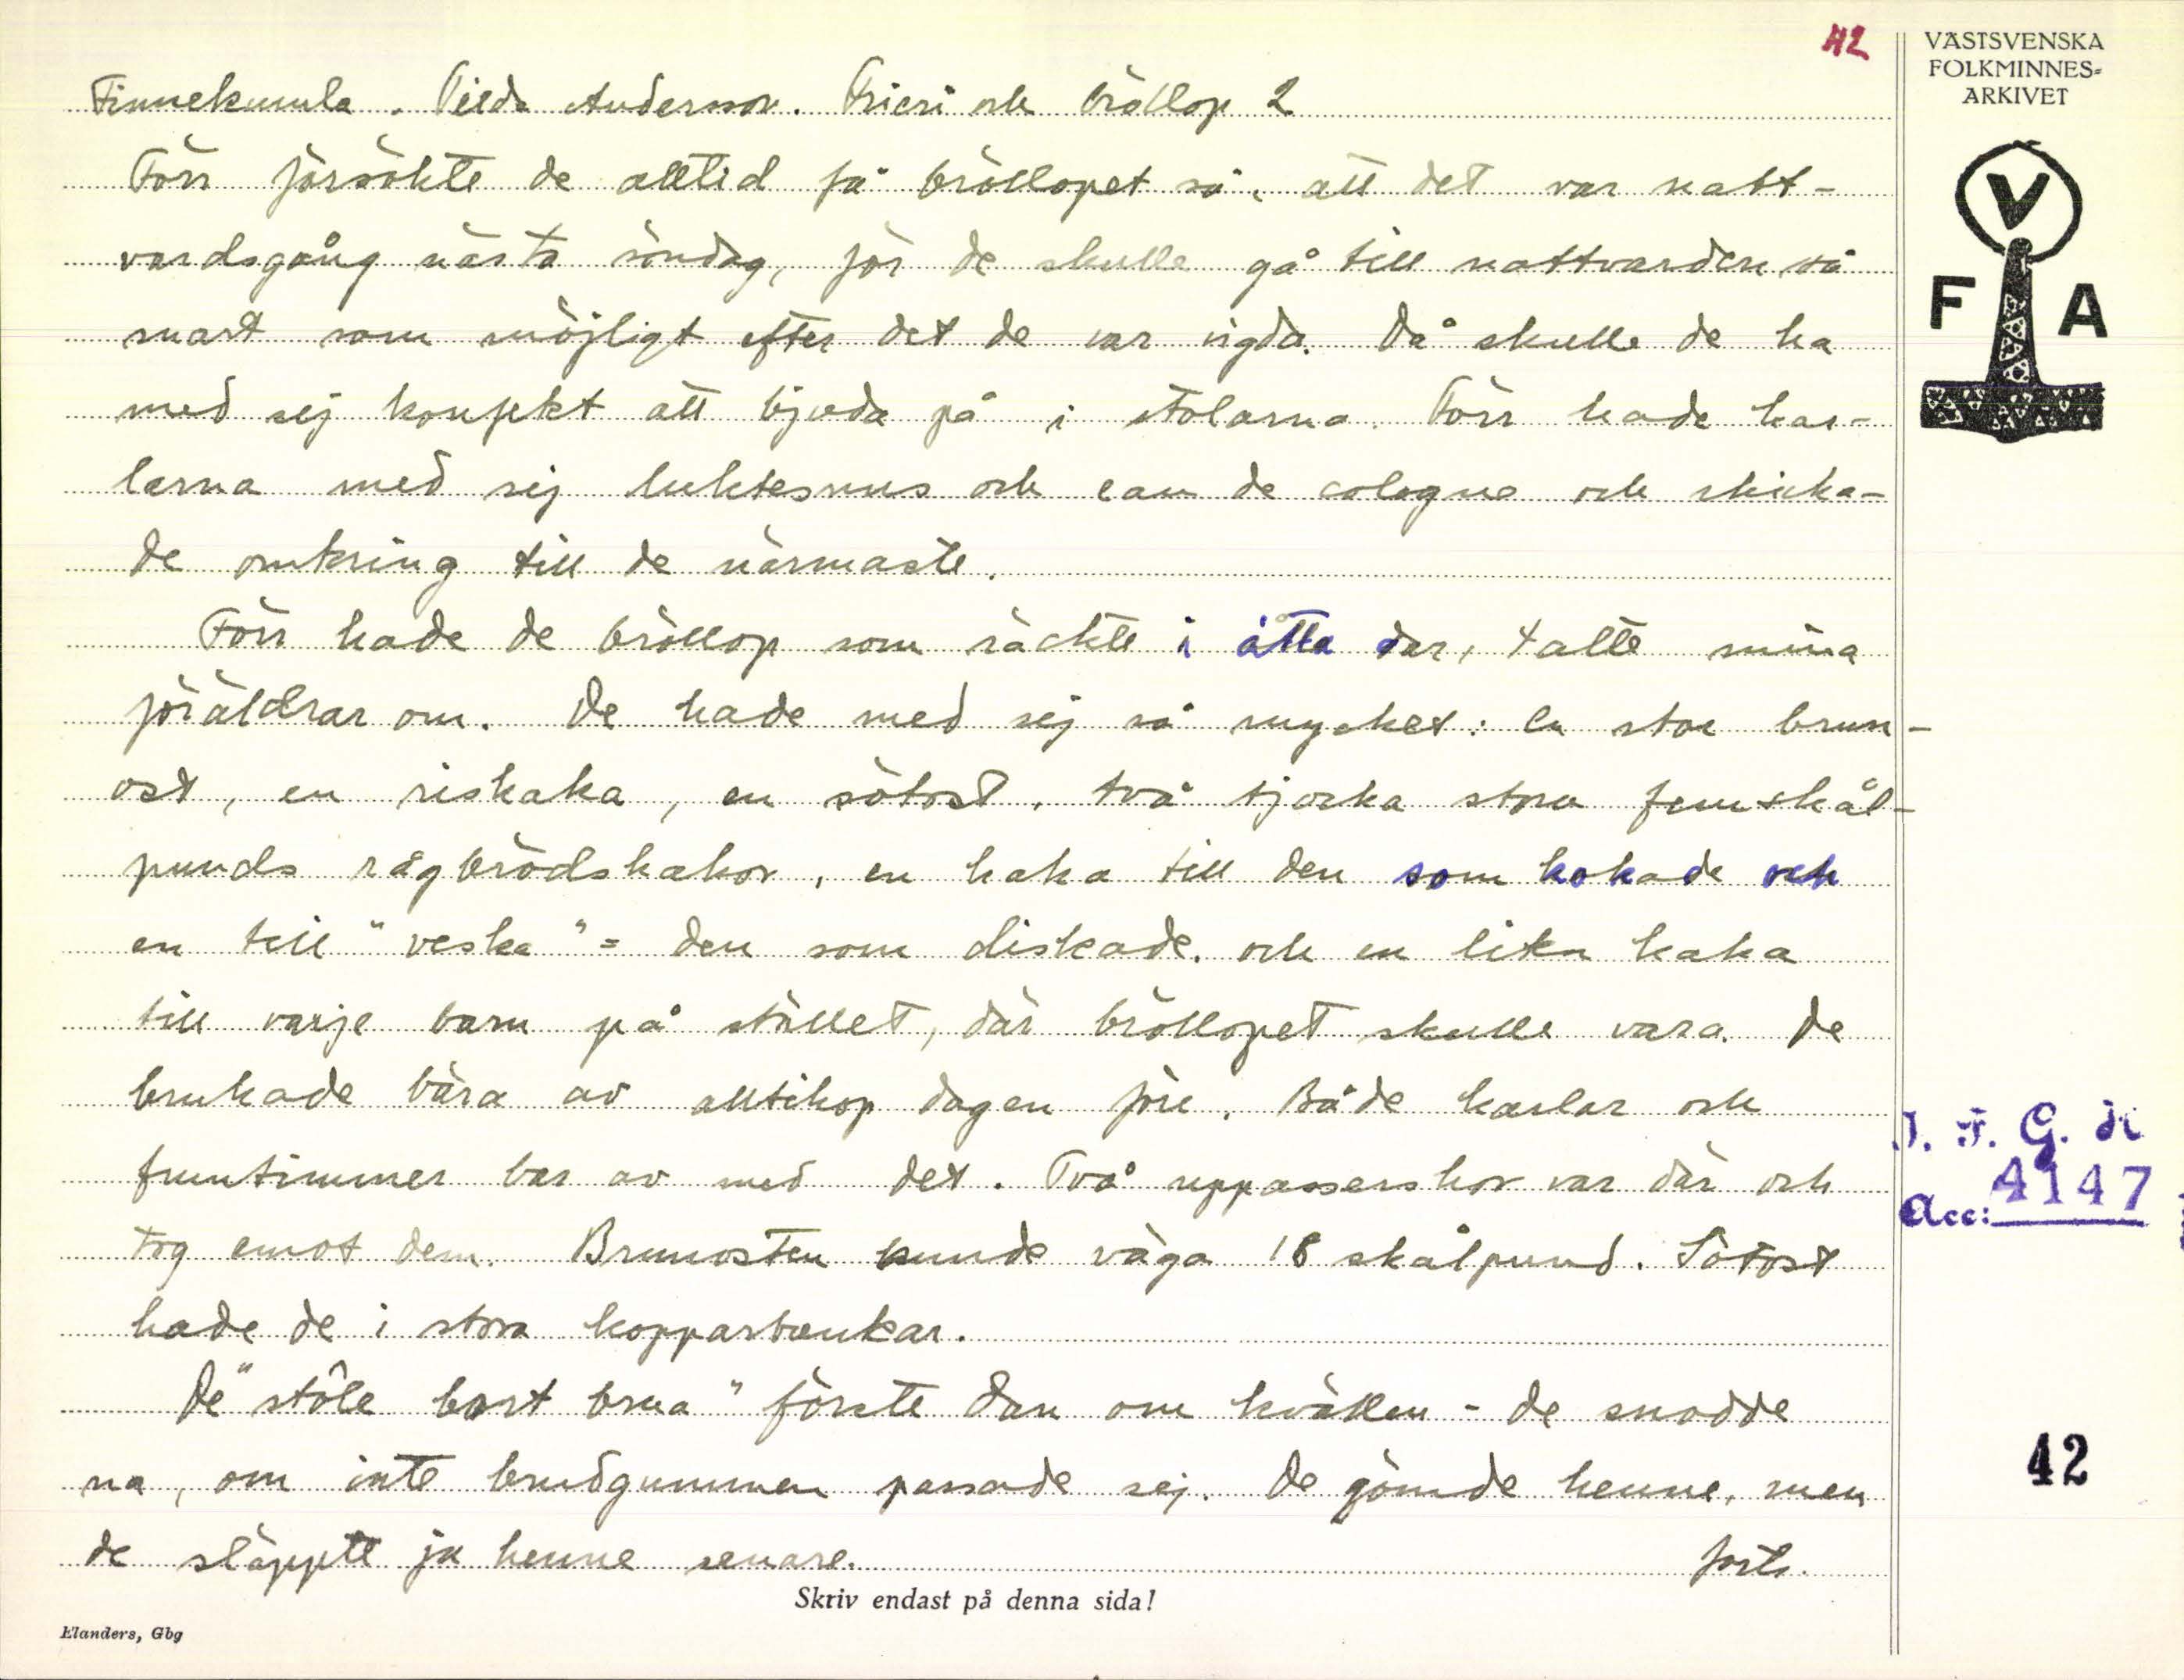 42
VÄSTSVENSKA
FOLKMINNES=
ARKIVET
V
F A
Finnekumla. Tilda Andersson. Frieri och bröllop 2
Förr försökte de alltid få bröllopet så, att det var natt-
vardsgång nästa söndag, för de skulle gå till nattvarden så
snart som möjligt efter det de var vigda. Då skulle de ha
med sej konfekt att bjuda på i stolarna. Förr hade kar-
larna med sej luktesnus och eau de cologne och skicka-
de omkring till de närmaste.
Förr hade de bröllop som räckte i åtta dar, talte mina
föräldrar om. De hade med sej så mycket: en stor brun-
ost, en riskaka, en sötost, två tjocka stora femskål-
punds rågbrödskakor, en kaka till den som kokade och
en till "veska" = den som diskade, och en liten kaka
till varje barn på stället, där bröllopet skulle vara. De
brukade bära av alltihop dagen före. Både karlar och
fruntimmer bar av med det. Två uppasserskor var där och
tog emot dem. Brunosten kunde väga 18 skålpund. Sötost
hade de i stora kopparbunkar.
De "stôle bort brua" förste dan om kvällen - de snodde
na, om inte brudgummen passade sej. De gömde henne, men
de släppte ju henne senare.
forts.
I. F. G. H
Acc: 4147
42
Skriv endast på denna sida!
Elanders, Gbg